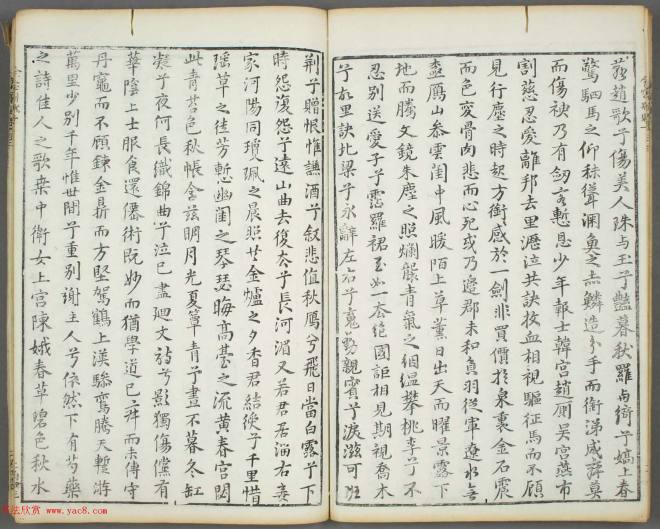 燕趙歌兮傷美人珠与玉兮艷暮秋羅与綺兮嬌上春
驚駟馬之仰秣聳淵魚之赤鱗造分手而銜涕感寂莫
而傷神乃有劍客慙恩少年報士韓宮趙厠吴宮燕市
割慈忍愛離邦去里瀝泣共訣抆血相視驅征馬而不顧
見行塵之時起方銜感於一劍非買價於泉裏金石震
而色變骨肉悲而心死或乃邊郡未和負羽從軍遼水無
極鴈山参雲閨中風暖陌上草薰日出天而曜景露下
地而騰文鏡朱塵之照爛襲青氣之絪縕攀桃李兮不
忍別送愛子兮霑羅裙至如一去絶國詎相見期視喬木
兮故里訣北梁兮永辭左右兮魂動親賓兮淚滋可班
荆兮贈恨惟罇酒兮叙悲值秋鴈兮飛日當白露兮下
時怨復怨兮遠山曲去復去兮長河湄又若君居淄右妾
家河陽同瓊珮之晨照共金爐之夕香君結綬兮千里惜
瑶草之徒芳慙幽閨之琴瑟晦高臺之流黄春宮閟
此青苔色秋帳含茲明月光夏簟青兮晝不暮冬釭
凝兮夜何長織錦曲兮泣已盡迴文詩兮影獨傷儻有
華陰上士服食還僊術既妙而猶學道已寂而未傳守
丹竈而不顧鍊金鼎而方堅駕鶴上漢驂鸞騰天暫游
萬里少別千年惟世間兮重別謝主人兮依然下有芍藥
之詩佳人之歌桑中衛女上宮陳娥春草碧色秋水
www.yac8.com